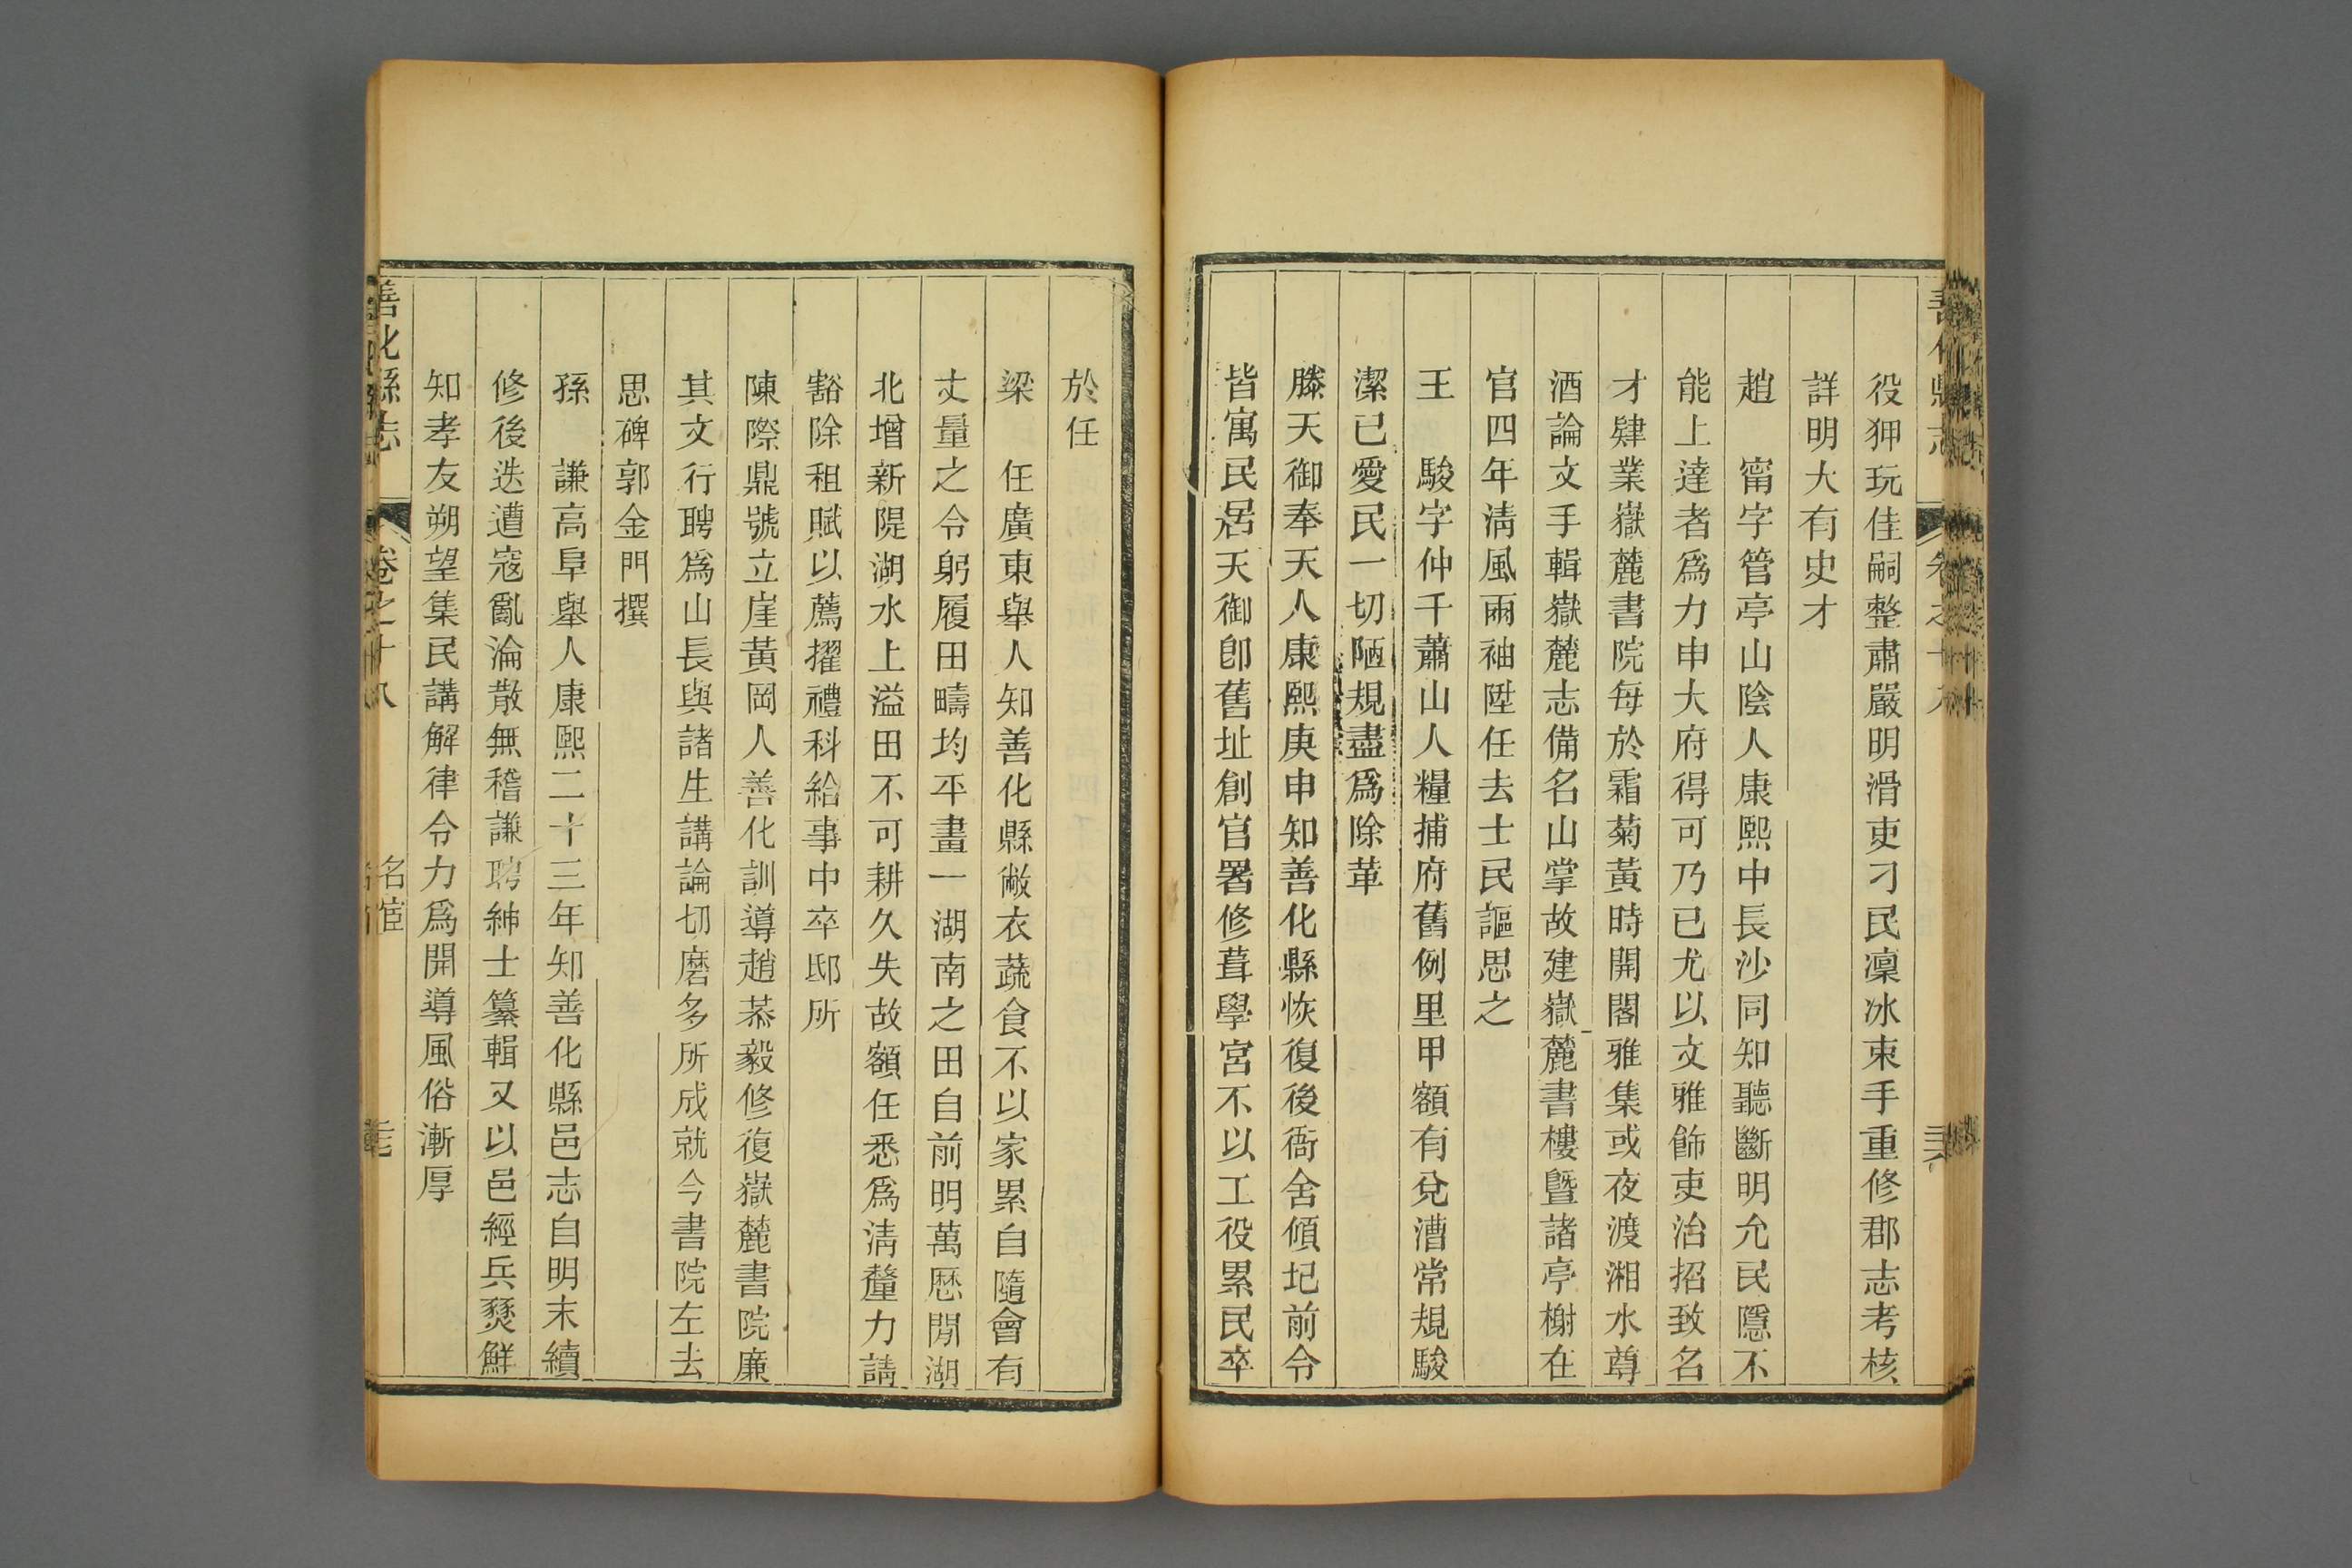 役狎玩佳嗣整肅嚴明滑吏刁民凜冰束手重修郡志考核
詳明大有史才
趙　甯字管亭山陰人康熙中長沙同知聽斷明允民隱不
能上達者爲力申大府得可乃已尤以文雅飾吏治招致名
才肄業嶽麓書院每於霜菊黃時開閣雅集或夜渡湘水尊
酒論文手輯嶽麓志備名山掌故建嶽麓書樓暨諸亭榭在
官四年淸風兩袖陞任去士民謳思之
王　駿字仲千蕭山人糧捕府舊例里甲額有兌漕常規駿
潔已愛民一切陋規盡爲除革
滕天御奉天人康熙庚申知善化縣恢復後衙舍傾圮前令
皆寓民居天御卽舊址創官署修葺學宮不以工役累民卒
於任
梁　任廣東舉人知善化縣敝衣蔬食不以家累自隨會有
丈量之令躬履田疇均平畫一湖南之田自前明萬厯閒湖
北增新隄湖水上溢田不可耕久失故額任悉爲淸釐力請
豁除租賦以薦擢禮科給事中卒邸所
陳際鼎號立崖黃岡人善化訓導趙恭毅修復嶽麓書院廉
其文行聘爲山長與諸生講論切磨多所成就今書院左去
思碑郭金門撰
孫　謙高阜舉人康熙二十三年知善化縣邑志自明末續
修後迭遭寇亂淪散無稽謙聘紳士纂輯又以邑經兵燹鮮
知孝友朔望集民講解律令力爲開導風俗漸厚
善化縣志　卷之十八　名宦